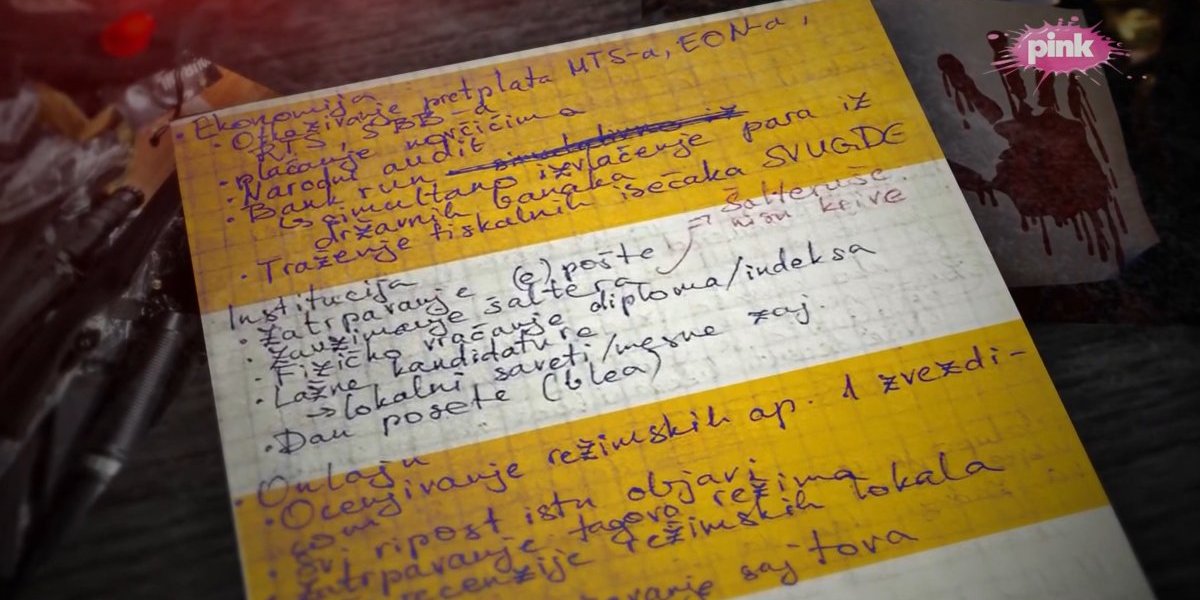 pink
• Ekonomija
• Otkazivanje pretplata MTS-a, EON-a,
RTS, SBB-a
• plaćanje novčićima
• Narodni audit
• Bank run
↳ simultano izvlačenje para iz
državnih banaka
• Traženje fiskalnih isečaka SVUGDE
Institucija
• Zatrpavanje (e)pošte → šalteruše
nisu krive
• Zauzimanje šaltera
• Fizičko vraćanje diploma/indeksa
• Lažne kandidature
→ lokalni saveti/mesne zaj.
• Dan posete (blea)
• Onlajn
• Ocenjivanje režimskih ap. 1 zvezdi-
com
• Svi ripost istu objavi
• Zatrpavanje tagova režima
recenzije režimskih lokala
sajtova